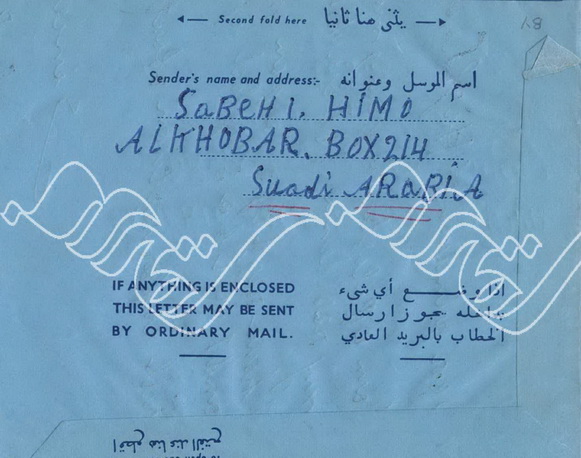 Second fold here يثنى هنا ثانيا
Sender's name and address:- اسم المرسل وعنوانه
SaBeH I. HIMO
ALKHOBAR. BOX 214
Suadi ARaBIA
IF ANYTHING IS ENCLOSED
THIS LETTER MAY BE SENT
BY ORDINARY MAIL.
اذا وضع أي شيء
بداخله يجوز ارسال
الخطاب بالبريد العادي